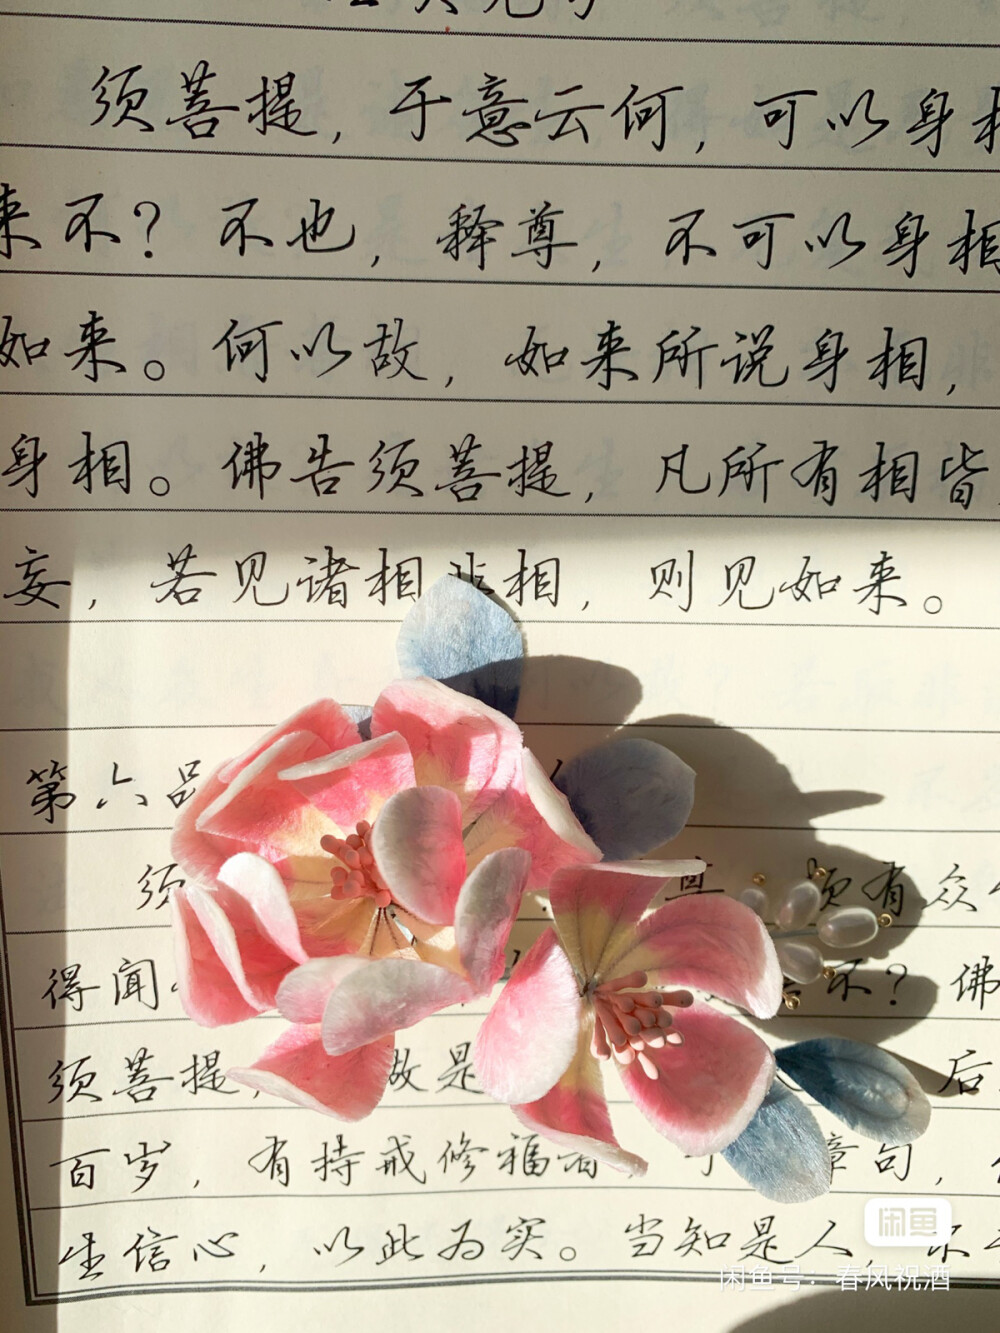 须菩提，于意云何，可以身相
来不？不也，释尊，不可以身相
如来。何以故，如来所说身相，
身相。佛告须菩提，凡所有相皆
妄，若见诸相非相，则见如来。
第六品
须 有众
得闻 不？佛
须菩提， 故是 后
百岁，有持戒修福者，于 章句，
生信心，以此为实。当知是人，不
闲鱼
闲鱼号：春风祝酒